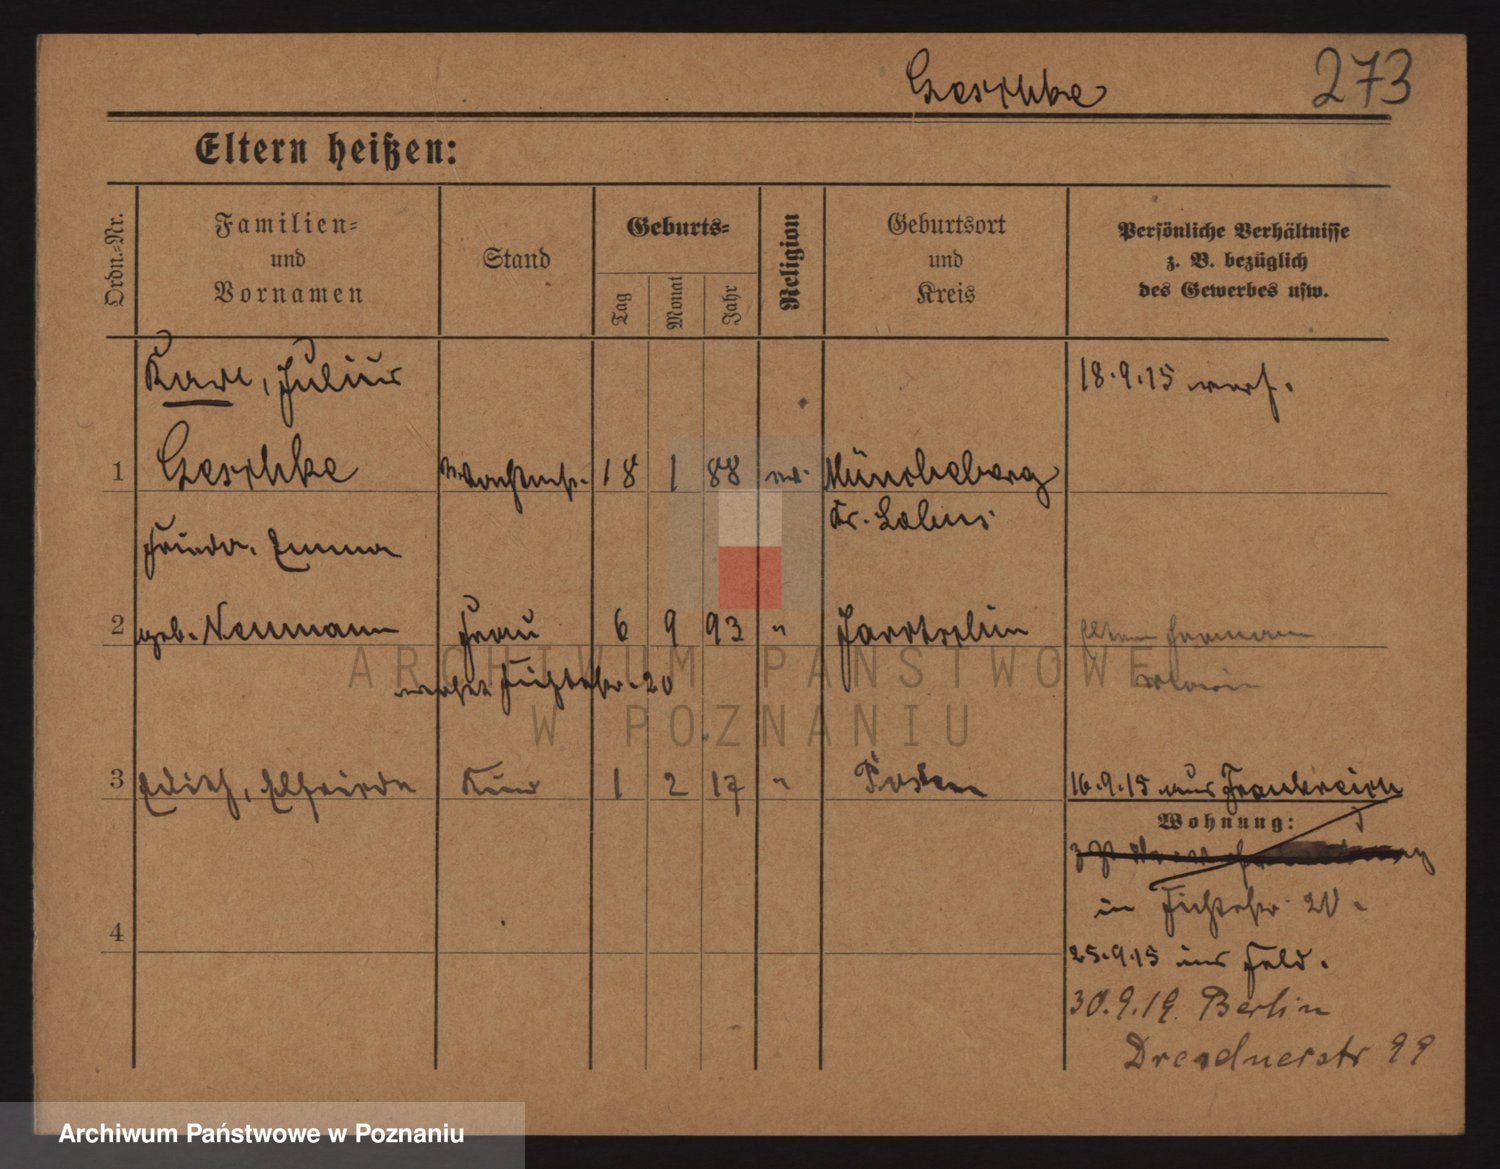 Geschke 273
Eltern heißen:
Ordn.-Nr.
Familien-
und
Vornamen
Stand
Geburts-
Tag
Monat
Jahr
Religion
Geburtsort
und
Kreis
Persönliche Verhältnisse
z. B. bezüglich
des Gewerbes usw.
Karl, Julius
18.9.15 verh.
1 Geschke 18 1 88 ev. Müncheberg
Kr. Lebus
Frieda, Emma
2 geb. Neumann Frau 6 9 93 "
wohnt Fichtestr. 20
3 Edith, Elfriede Kind 1 2 17 " Posen
16.9.15 aus Frankreich
Wohnung:
in Fichtestr. 20.
4
25.9.15 ins Feld.
30.9.19. Berlin
Dresdnerstr 99
ARCHIWUM PAŃSTWOWE
W POZNANIU
Archiwum Państwowe w Poznaniu